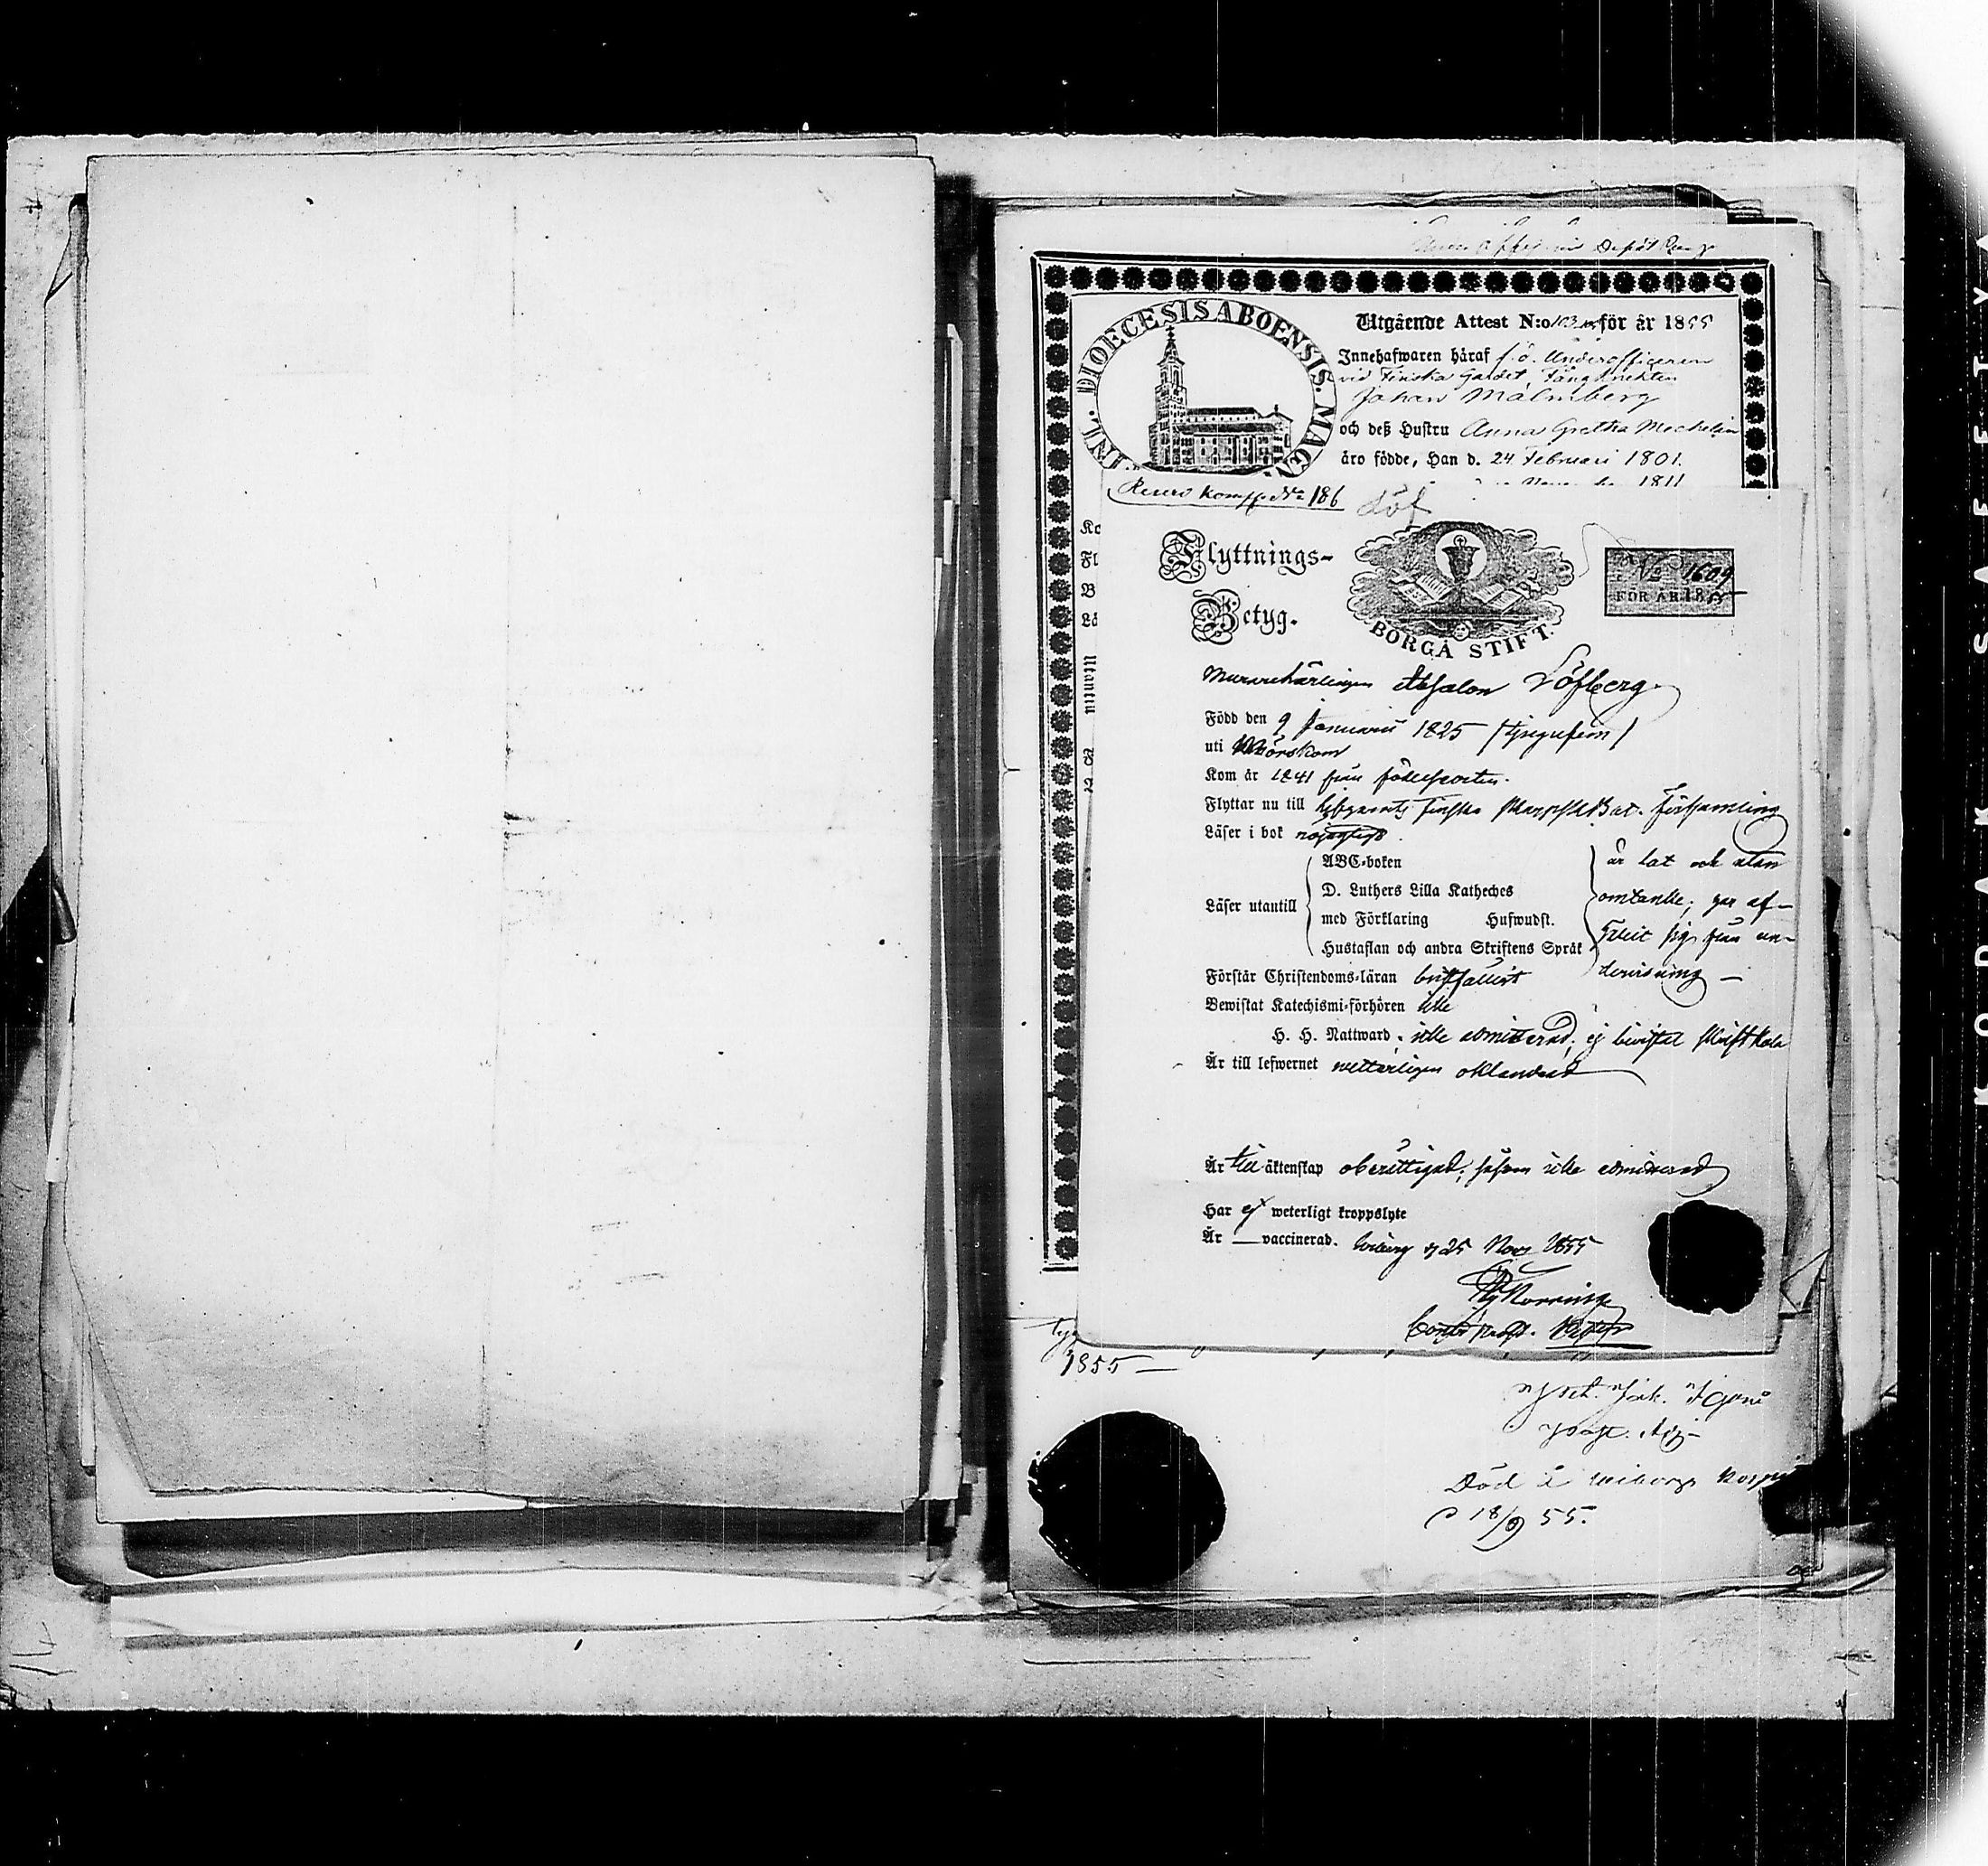 Depôt
DIOECESIS ABOENSIS. MAGN.
FINL.
Utgående Attest N:o 103 för år 1855
Innehafwaren häraf f. ö. Underofficeren
vid Finska Gardet, Fångknekten
Johan Malmberg
och deß Hustru Anna Gretha Mechelin
äro födde, Han d. 24 Februari 1801.
1811
Reserv Komp. No 186
Löf
Ko
Fl
B
Lä
Utantill
Flyttnings-
Betyg.
BORGÅ STIFT.
No 1609
FÖR ÅR 1855
Murarelärlingen Absalon Löfberg
Född den 9 Januarii 1825 /tjugufem/
uti Mörskom
Kom år 1841 från födelseorten.
Flyttar nu till Finska Församling
Läser i bok nöjagtigt.
Läser utantill
ABC-boken
D. Luthers Lilla Katheches
med Förklaring Hufwudst.
Hustaflan och andra Skriftens Språk
är lat och utan
omtanke; har af-
sig från un-
dervisning —
Förstår Christendoms-läran bristfälligt
Bewistat Katechismi-förhören icke
H. H. Nattward, icke admitterad; ej bevistat skriftskola
Är till lefwernet vetterligen oklandrad
Är till äktenskap oberättigad; såsom icke admitterad
Har ej weterligt kroppslyte
Är — vaccinerad. Wiborg d 25 Nov 1855
1855 —
Död å Wiborgs
d 18/9 55.
KODAK SAFETY